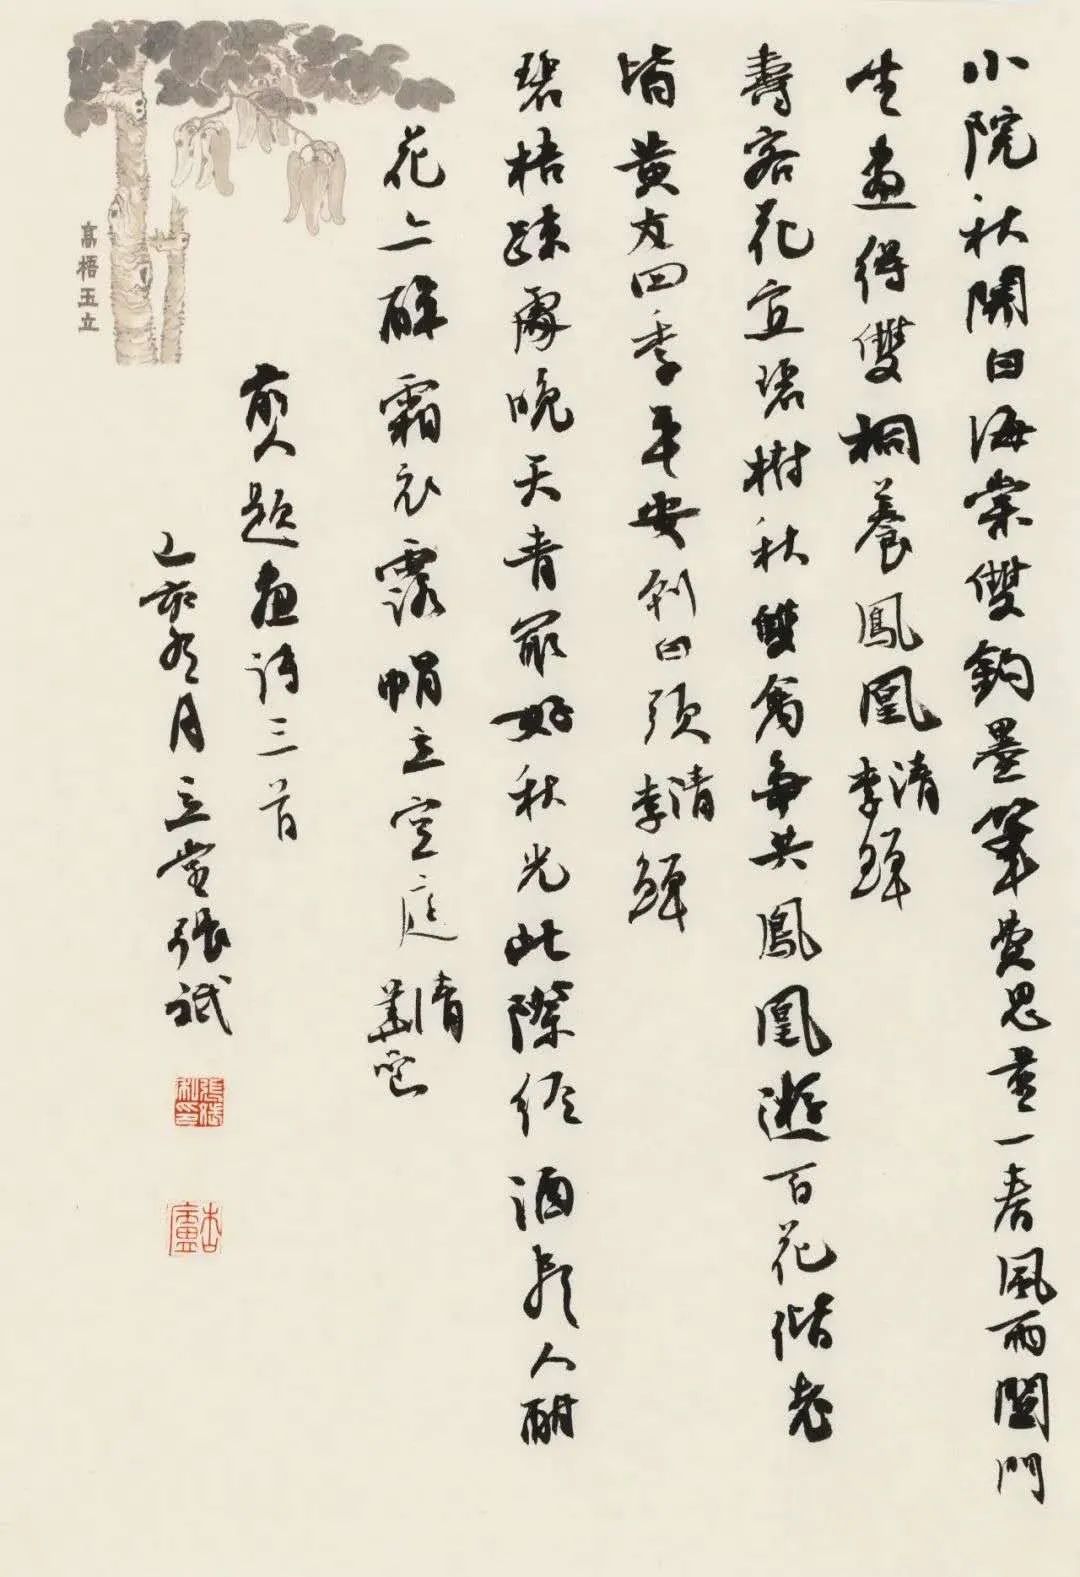 小院秋開白海棠雙鉤墨筆費思量一春風雨閉門
坐畫得雙桐養鳳凰 清李鱓
壽客花宜碧樹秋雙禽每共鳳凰遊百花偕老
皆黃友四季平安到白頭 清李鱓
碧梧疎處晚天青最好秋光此際經酒人酣
花亦醉霜衣露立空庭 清華嵒
前人題畫詩三首
亥月立堂張
高梧玉立